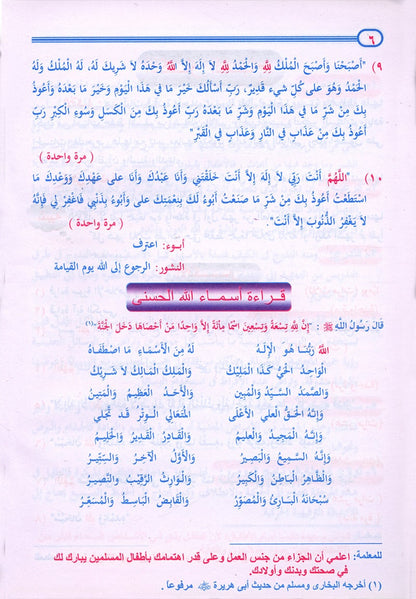 ٦
٩) "أَصْبَحْنَا وَأَصْبَحَ الْمُلْكُ لِلَّهِ وَالْحَمْدُ لِلَّهِ لاَ إِلَهَ إِلاَّ اللَّهُ وَحْدَهُ لاَ شَرِيكَ لَهُ، لَهُ الْمُلْكُ وَلَهُ
الْحَمْدُ وَهُوَ عَلَى كُلِّ شَيءٍ قَدِيرٌ، رَبِّ أَسْأَلُكَ خَيْرَ مَا فِي هَذَا الْيَوْمِ وَخَيْرَ مَا بَعْدَهُ وَأَعُوذُ
بِكَ مِنْ شَرِّ مَا فِي هَذَا الْيَوْمِ وَشَرِّ مَا بَعْدَهُ رَبِّ أَعُوذُ بِكَ مِنَ الْكَسَلِ وَسُوءِ الْكِبَرِ رَبِّ
أَعُوذُ بِكَ مِنْ عَذَابٍ فِي النَّارِ وَعَذَابٍ فِي الْقَبْرِ"
( مرة واحدة )
١٠) "اللَّهُمَّ أَنْتَ رَبِّي لاَ إِلَهَ إِلاَّ أَنْتَ خَلَقْتَنِي وَأَنَا عَبْدُكَ وَأَنَا عَلَى عَهْدِكَ وَوَعْدِكَ مَا
اسْتَطَعْتُ أَعُوذُ بِكَ مِنْ شَرِّ مَا صَنَعْتُ أَبُوءُ لَكَ بِنِعْمَتِكَ عَلَيَّ وَأَبُوءُ بِذَنْبِي فَاغْفِرْ لِي فَإِنَّهُ
لاَ يَغْفِرُ الذُّنُوبَ إِلاَّ أَنْتَ". ( مرة واحدة )
أبوء: اعترف
النشور: الرجوع إلى الله يوم القيامة
قراءة أسماء الله الحسنى
قَالَ رَسُولُ اللَّهِ ﷺ : "إِنَّ لِلَّهِ تِسْعَةً وَتِسْعِينَ اسْمًا مِائَةً إِلاَّ وَاحِدًا مَنْ أَحْصَاهَا دَخَلَ الْجَنَّةَ"(١)
اللَّهُ رَبُّنَا هُوَ الإِلَهُ لَهُ مِنَ الأَسْمَاءِ مَا اصْطَفَاهُ
الْوَاحِدُ الْحَيُّ كَذَا الْمَلِيكُ وَالْمَلِكُ الْمَالِكُ لاَ شَرِيكُ
وَالصَّمَدُ السَّيِّدُ وَالْمُبِين وَالأَحَدُ الْعَظِيمُ وَالْمَتِينُ
وَإِنَّهُ الْحَقُّ الْعَلِي الأَعْلَى وَالْمُتَعَالِي الْوِتْرُ قَدْ تَجَلَّي
وَإِنَّهُ الْمَجِيدُ وَالْعَلِيمُ وَالْقَادِرُ الْقَدِيرُ وَالْحَلِيمُ
وَإِنَّهُ السَّمِيعُ وَالْبَصِيرُ وَالأَوَّلُ الآخِرُ وَالسِّتِّيرُ
وَالظَّاهِرُ الْبَاطِنُ وَالْكَبِيرُ وَالْوَارِثُ الرَّقِيبُ وَالنَّصِيرُ
سُبْحَانَهُ الْبَارِئُ وَالْمُصَوِّرُ وَالْقَابِضُ الْبَاسِطُ وَالْمُسَعِّرُ
للمعلمة: اعلمي أن الجزاء من جنس العمل وعلى قدر اهتمامك بأطفال المسلمين يبارك لك
في صحتك وبدنك وأولادك.
(١) أخرجه البخارى ومسلم من حديث أبى هريرة ﷺ مرفوعاً.